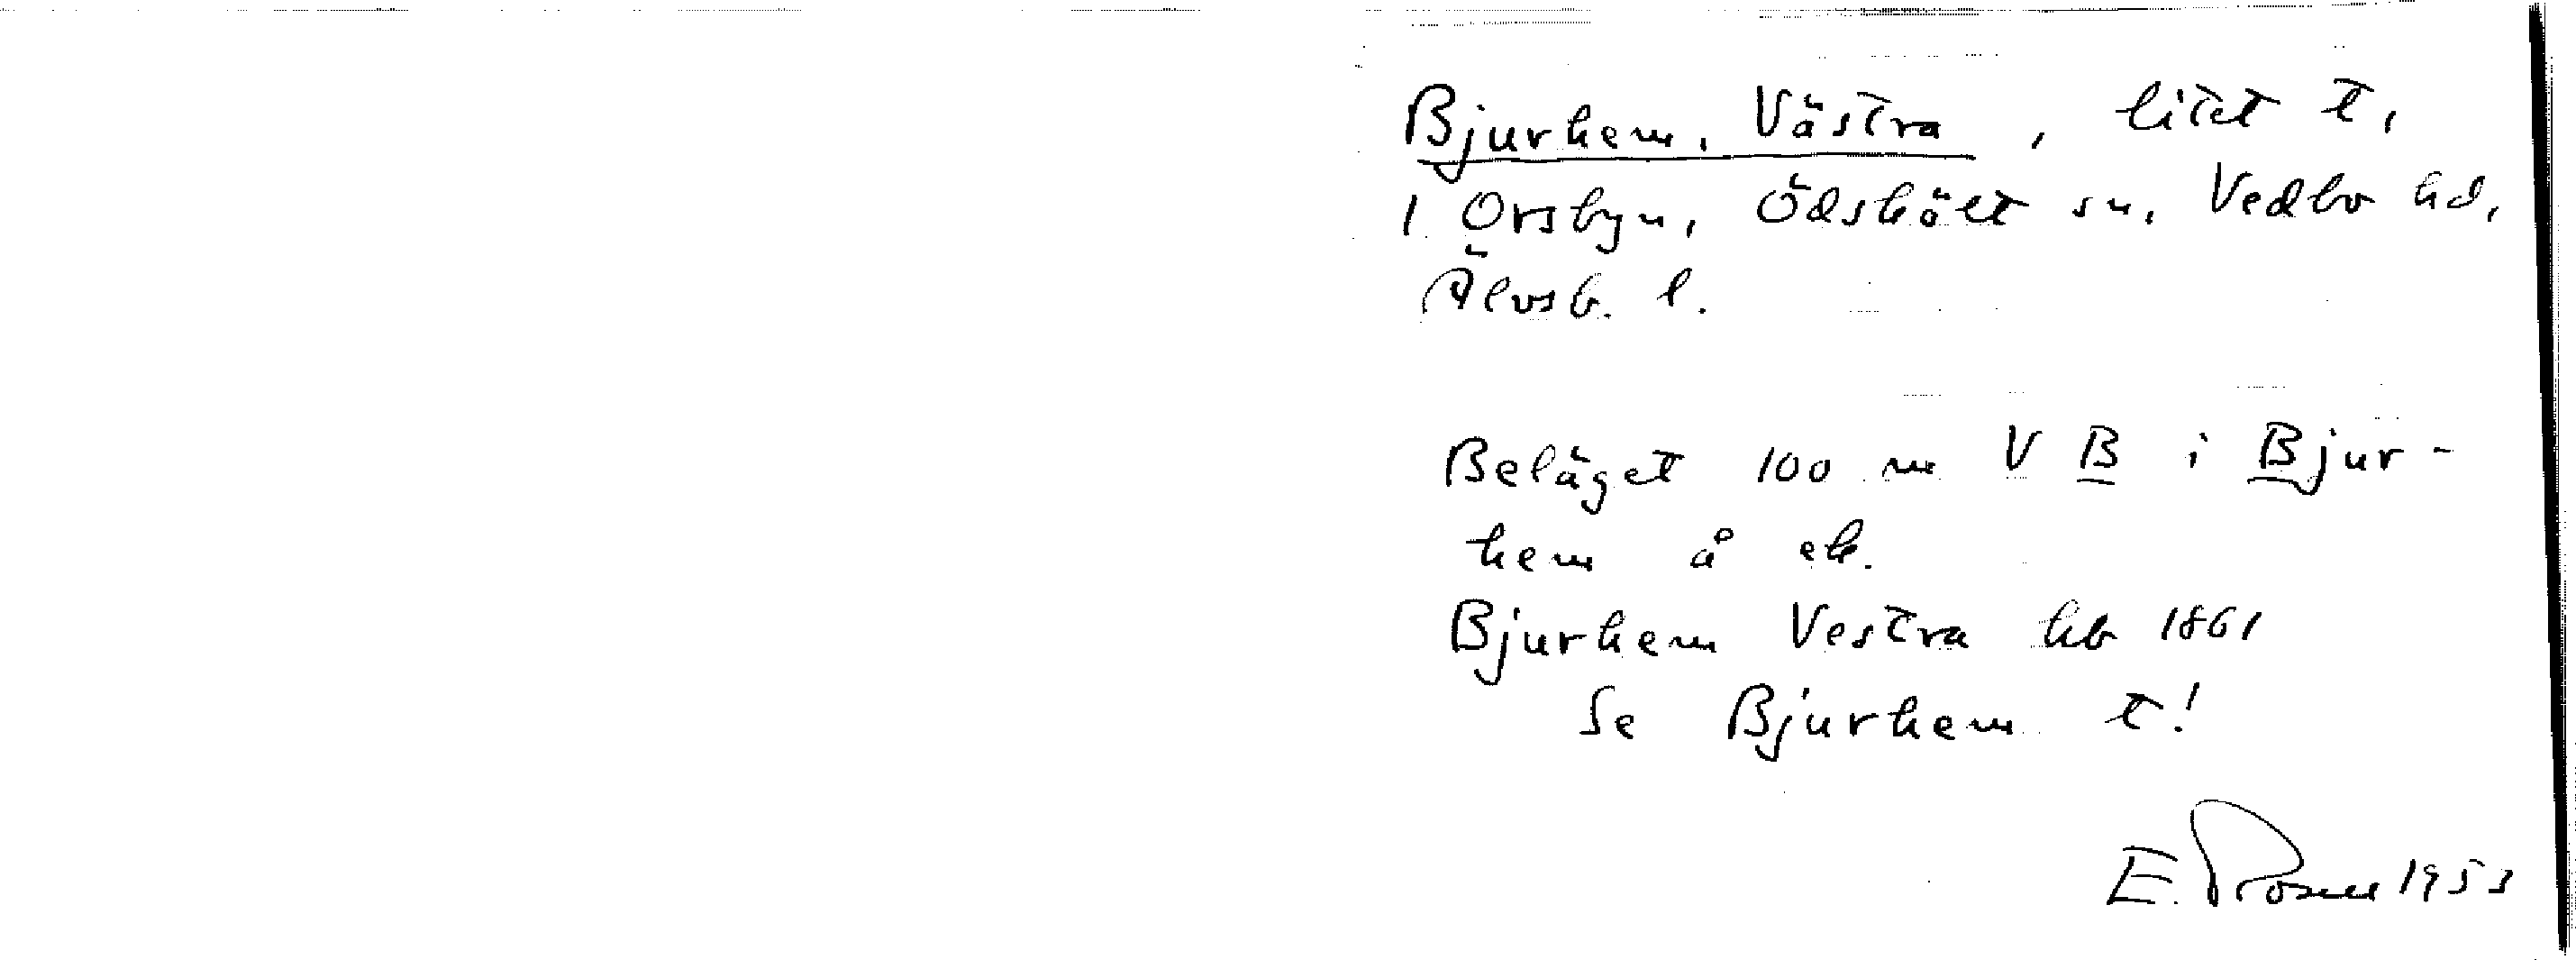 Bjurhem, Västra, litet t,
i Orsbyn, Ödskölt sn, Vedbo hd,
Älvsb. l.
Beläget 100 m V B i Bjur-
hem å ek.
Bjurhem Vestra hb 1861
Se Bjurhem t!
E. Rosell 1953